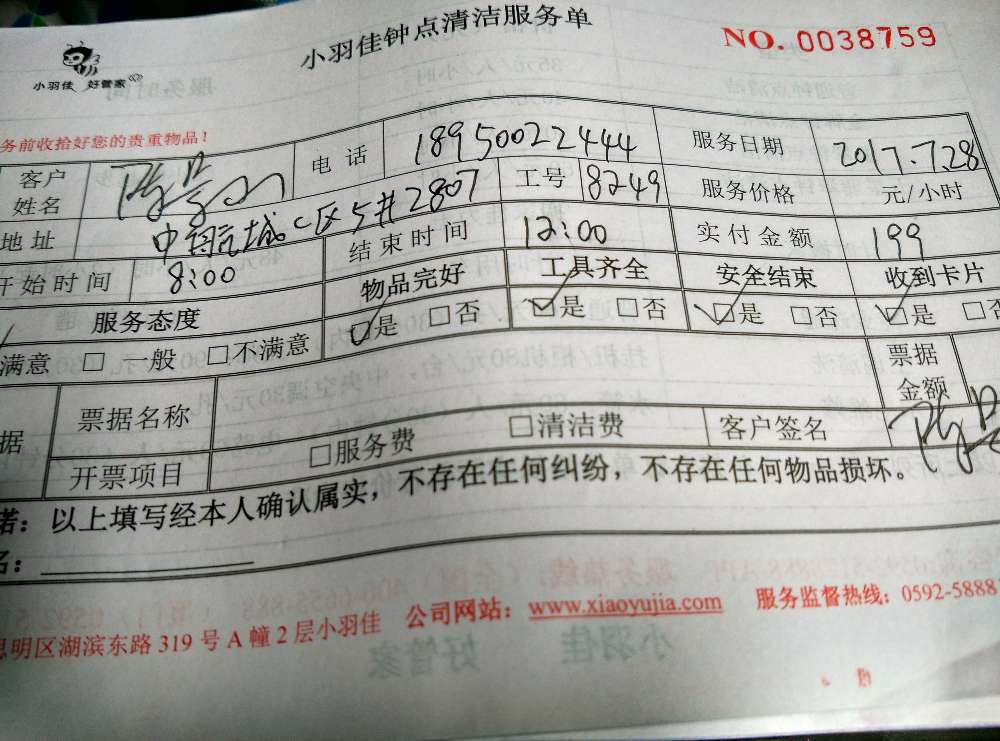 小羽佳钟点清洁服务单
NO. 0038759
小羽佳 好管家
务前收拾好您的贵重物品！
客户姓名 电话 18950022444 服务日期 2017.7.28
地址 中航城C区5#2807 工号 8249 服务价格 元/小时
开始时间 8:00 结束时间 12:00 实付金额 199
服务态度 物品完好 工具齐全 安全结束 收到卡片
满意 □ 一般 □不满意 ☑是 □否 ☑是 □否 ☑是 □否 ☑是 □否
据 票据名称 票据金额
开票项目 □服务费 □清洁费 客户签名
诺：以上填写经本人确认属实，不存在任何纠纷，不存在任何物品损坏。
名：
思明区湖滨东路 319 号 A 幢 2 层小羽佳 公司网站：www.xiaoyujia.com 服务监督热线：0592-5888